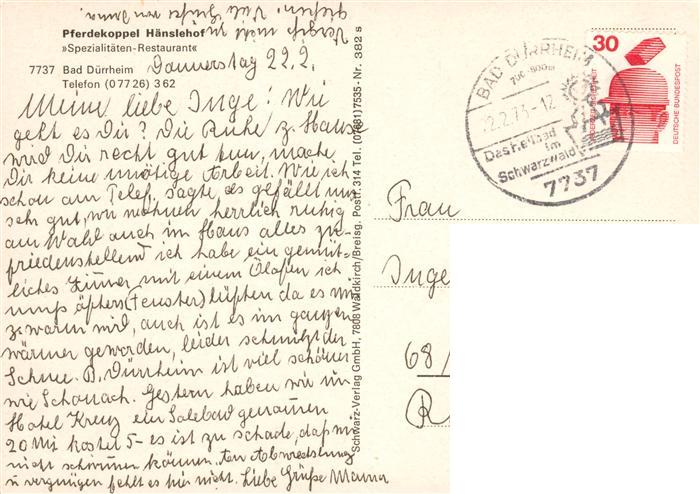 gießen. Viele Grüße von Deiner
Vergiß nicht zu
Pferdekoppel Hänslehof
»Spezialitäten-Restaurant«
7737 Bad Dürrheim
Telefon (0 77 26) 3 62
Donnerstag 22.2.
Meine liebe Inge! Wie
geht es Dir? Die Ruhe z. Hause
wird Dir recht gut tun, mache
Dir keine unötige Arbeit. Wie ich
schon am Telef. sagte, es gefällt uns
sehr gut, wir wohnen herrlich ruhig
am Wald auch im Haus alles zu-
friedenstellend ich habe ein gemüt-
liches Zimmer mit einem Ölofen ich
muß öfters (Fenster) lüften da es mir
z. warm wird, auch ist es im ganzen
wärmer geworden, leider schmilzt der
Schnee. B. Dürrheim ist viel schöner
wie Schonach. Gestern haben wir im
Hotel Kreuz ein Solebad genommen
20 Mi kostet 5- es ist zu schade, daß wir
nicht schwimmen können. An Abwechslung
u vergnügen fehlt es hier nicht. Liebe Grüße Mama
Schwarz-Verlag GmbH, 7808 Waldkirch/Breisg. Postf. 314 Tel. (07681) 7535 - Nr. 382 s
BAD DÜRRHEIM
700-800m
22.2.73-12
Das Heilbad
im
Schwarzwald
7737
30
DEUTSCHE BUNDESPOST
Frau
Inge
68/
R